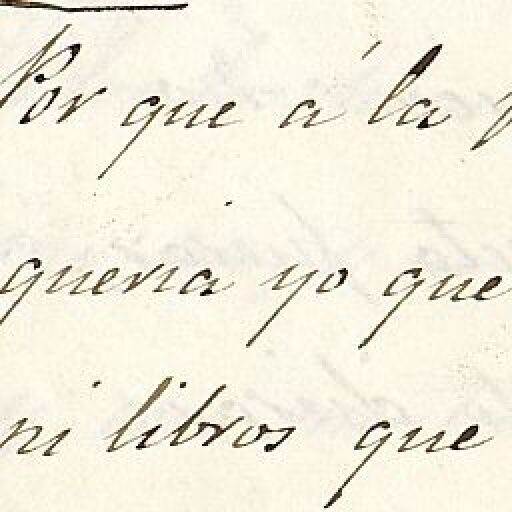 Por que á la
queria yo que
ni libros que